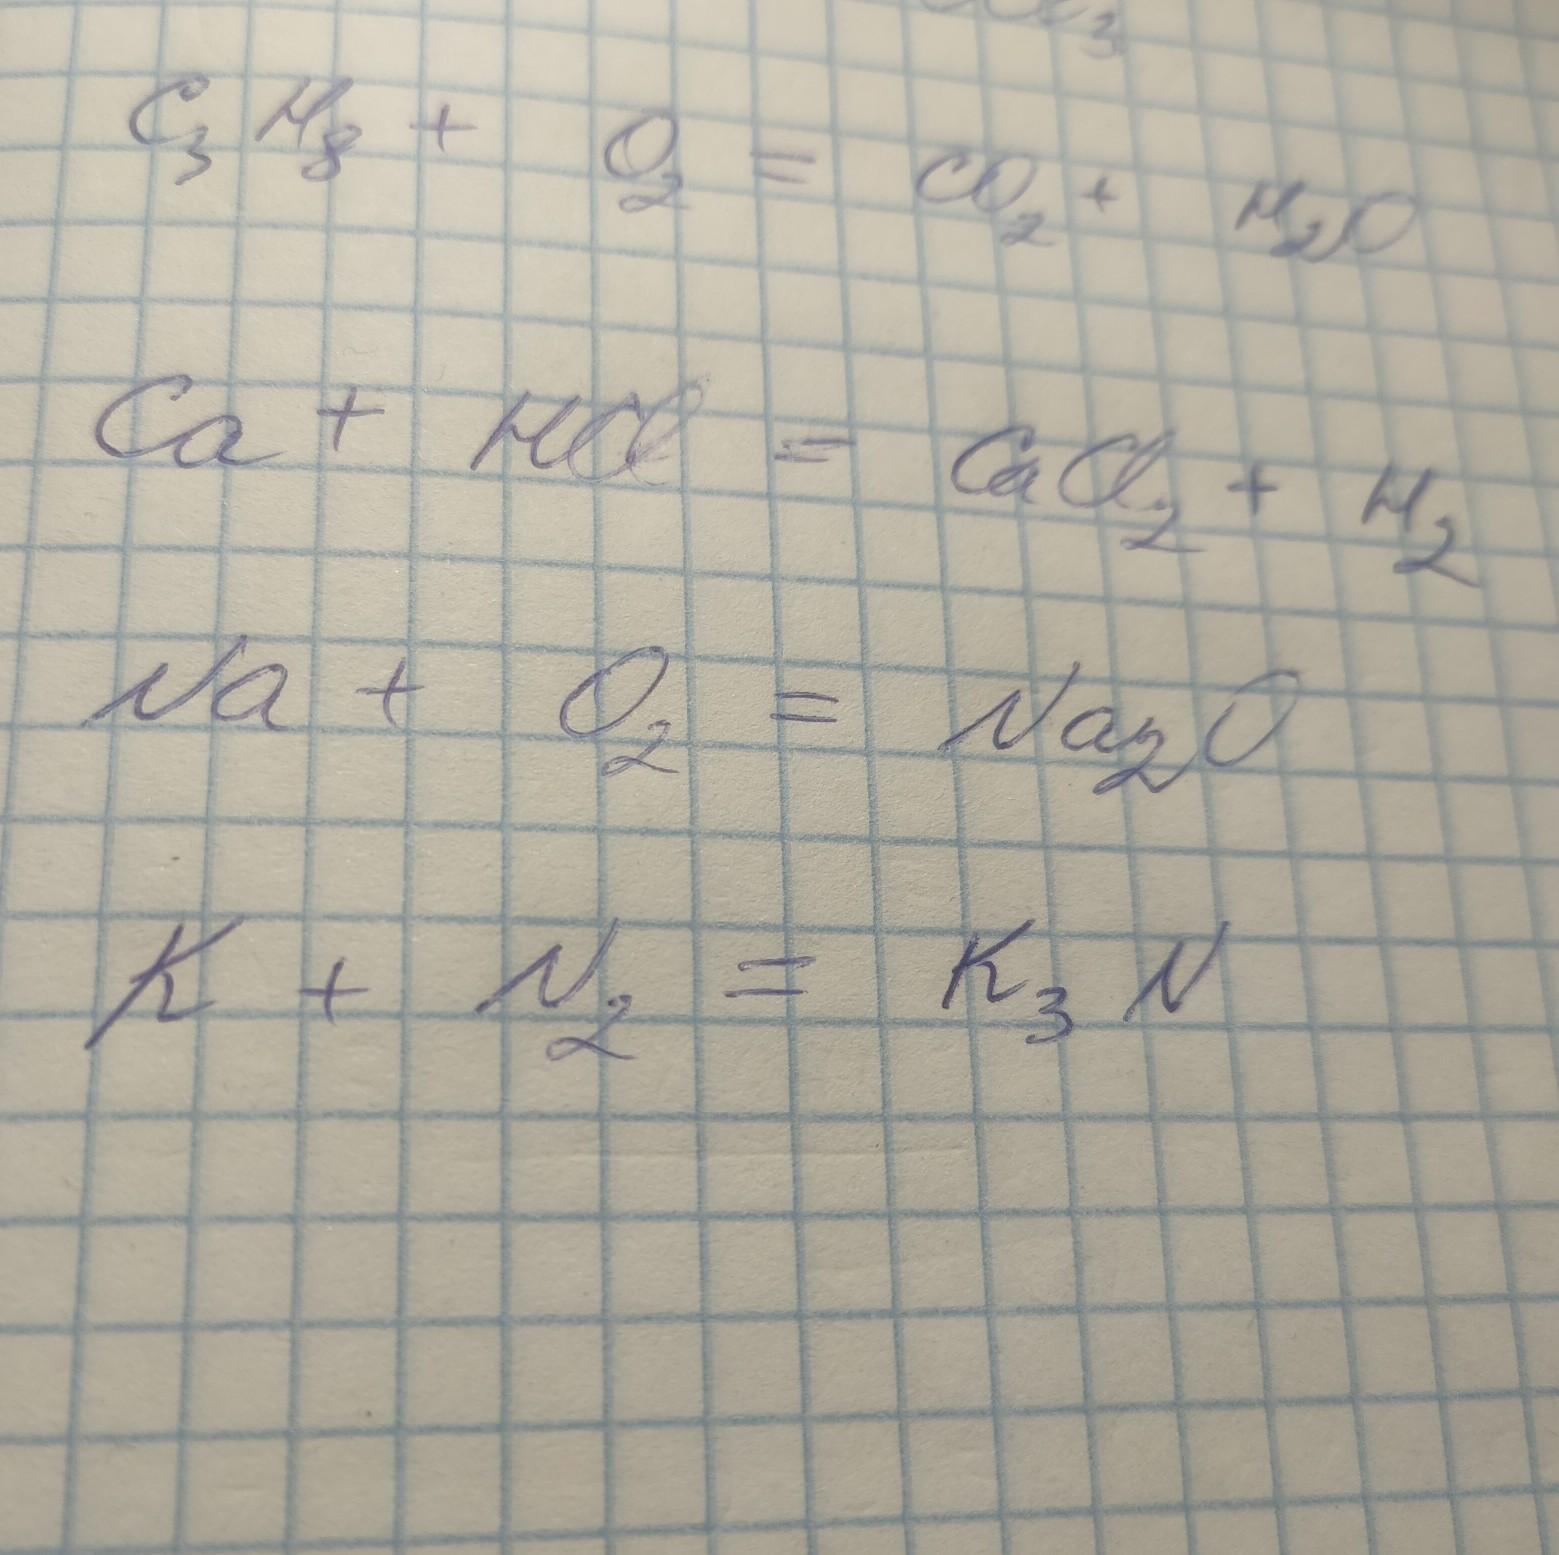 C₃H₈ + O₂ = CO₂ + H₂O
Ca + HCl = CaCl₂ + H₂
Na + O₂ = Na₂O
K + N₂ = K₃N